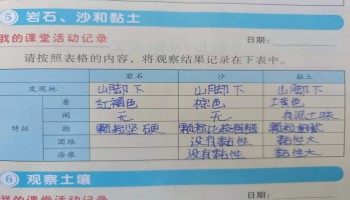 ⑤ 岩石、沙和黏土
我的课堂活动记录 日期:
请按照表格的内容，将观察结果记录在下表中。
岩石 沙 黏土
发现地 山脚下 山脚下 山脚下
看 红褐色 棕色 土黄色
闻 无 无 有泥土味
特征 捻 颗粒坚硬 颗粒比较粗糙 颗粒
团球 没有黏性 黏性大
活球 没有黏性 黏性大
⑥ 观察土壤
我的课堂活动记录 日期: